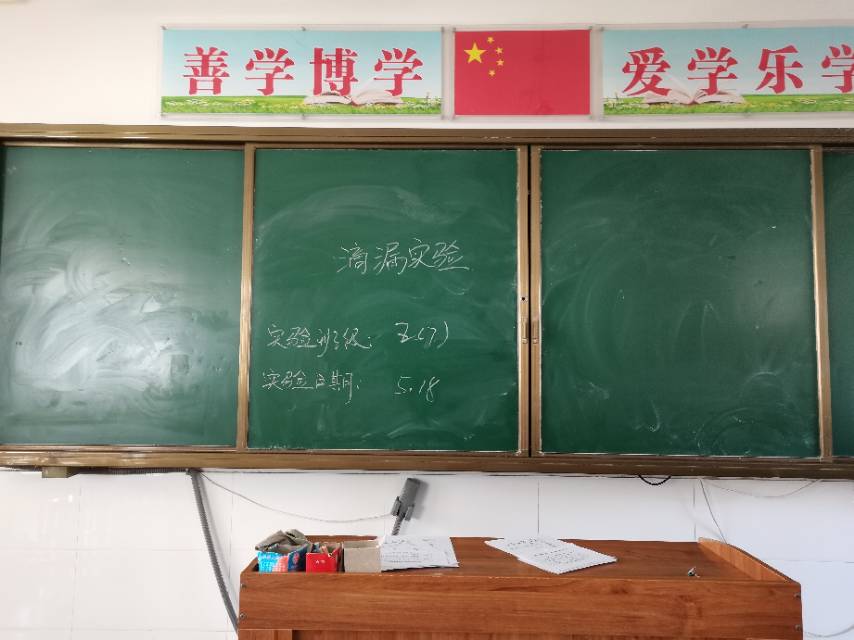 善学博学
爱学乐学
滴漏实验
实验班级：五(7)
实验日期：5.18